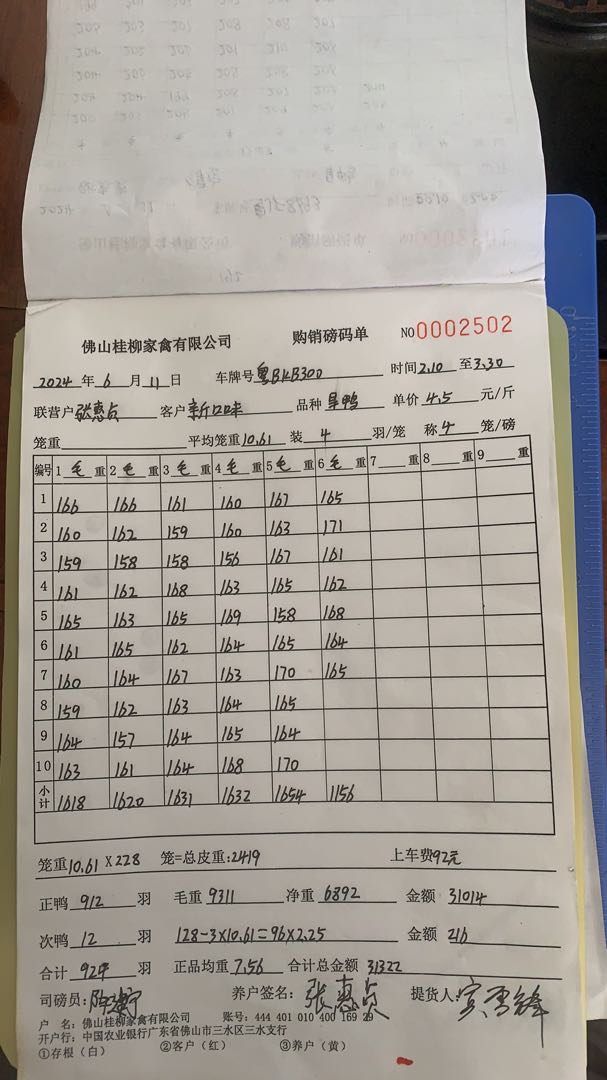 佛山桂柳家禽有限公司 购销磅码单 NO0002502
2024年6月11日 车牌号粤BKB300 时间2.10至3.30
联营户张惠贞 客户新口味 品种旱鸭 单价4.5元/斤
笼重 平均笼重10.61装4羽/笼 称4笼/磅
编号 1毛重 2毛重 3毛重 4毛重 5毛重 6毛重 7重 8重 9重
1 166 166 161 160 167 165
2 160 162 159 160 163 171
3 159 158 158 156 167 161
4 161 162 168 163 165 162
5 165 163 165 169 158 168
6 161 165 162 164 165 164
7 160 164 167 163 170 165
8 159 162 163 164 165
9 164 157 164 165 164
10 163 161 164 168 170
小计 1618 1620 1631 1632 1654 1156
笼重10.61×228 笼=总皮重:2419 上车费92元
正鸭912羽 毛重9311 净重6892 金额31014
次鸭12羽 128-3×10.61=96×2.25 金额216
合计924羽 正品均重7.56 合计总金额31322
司磅员: 养户签名:张惠贞 提货人:宾雪锋
户 名:佛山桂柳家禽有限公司 账号:444 401 010 400 169 29
开户行:中国农业银行广东省佛山市三水区三水支行
①存根(白) ②客户(红) ③养户(黄)